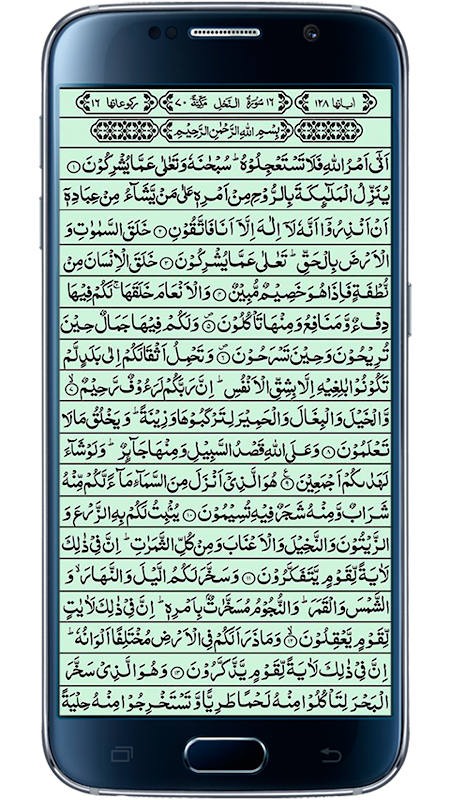 اٰیاتها ١٢٨ ١٦ سُوْرَةُ النَّحْلِ مَكِّيَّةٌ ٧٠ رکوعاتها ١٦
بِسْمِ اللّٰهِ الرَّحْمٰنِ الرَّحِيْمِ
اَتٰۤى اَمْرُ اللّٰهِ فَلَا تَسْتَعْجِلُوْهُ ؕ سُبْحٰنَهٗ وَتَعٰلٰى عَمَّا يُشْرِكُوْنَ ۝١
يُنَزِّلُ الْمَلٰٓئِكَةَ بِالرُّوْحِ مِنْ اَمْرِهٖ عَلٰى مَنْ يَّشَآءُ مِنْ عِبَادِهٖۤ
اَنْ اَنْذِرُوْۤا اَنَّهٗ لَاۤ اِلٰهَ اِلَّاۤ اَنَا فَاتَّقُوْنِ ۝٢ خَلَقَ السَّمٰوٰتِ وَ
الْاَرْضَ بِالْحَقِّ ؕ تَعٰلٰى عَمَّا يُشْرِكُوْنَ ۝٣ خَلَقَ الْاِنْسَانَ مِنْ
نُّطْفَةٍ فَاِذَا هُوَ خَصِيْمٌ مُّبِيْنٌ ۝٤ وَالْاَنْعَامَ خَلَقَهَا ۚ لَكُمْ فِيْهَا
دِفْءٌ وَّمَنَافِعُ وَمِنْهَا تَاْكُلُوْنَ ۝٥ وَلَكُمْ فِيْهَا جَمَالٌ حِيْنَ
تُرِيْحُوْنَ وَحِيْنَ تَسْرَحُوْنَ ۝٦ وَتَحْمِلُ اَثْقَالَكُمْ اِلٰى بَلَدٍ لَّمْ
تَكُوْنُوْا بٰلِغِيْهِ اِلَّا بِشِقِّ الْاَنْفُسِ ؕ اِنَّ رَبَّكُمْ لَرَءُوْفٌ رَّحِيْمٌ ۝٧
وَّالْخَيْلَ وَالْبِغَالَ وَالْحَمِيْرَ لِتَرْكَبُوْهَا وَزِيْنَةً ؕ وَيَخْلُقُ مَا لَا
تَعْلَمُوْنَ ۝٨ وَعَلَى اللّٰهِ قَصْدُ السَّبِيْلِ وَمِنْهَا جَآئِرٌ ؕ وَلَوْ شَآءَ
لَهَدٰىكُمْ اَجْمَعِيْنَ ۝٩ هُوَ الَّذِيْۤ اَنْزَلَ مِنَ السَّمَآءِ مَآءً لَّكُمْ مِّنْهُ
شَرَابٌ وَّمِنْهُ شَجَرٌ فِيْهِ تُسِيْمُوْنَ ۝١٠ يُنْۢبِتُ لَكُمْ بِهِ الزَّرْعَ وَ
الزَّيْتُوْنَ وَالنَّخِيْلَ وَالْاَعْنَابَ وَمِنْ كُلِّ الثَّمَرٰتِ ؕ اِنَّ فِيْ ذٰلِكَ
لَاٰيَةً لِّقَوْمٍ يَّتَفَكَّرُوْنَ ۝١١ وَسَخَّرَ لَكُمُ الَّيْلَ وَالنَّهَارَ ۙ وَ
الشَّمْسَ وَالْقَمَرَ ؕ وَالنُّجُوْمُ مُسَخَّرٰتٌۢ بِاَمْرِهٖ ؕ اِنَّ فِيْ ذٰلِكَ لَاٰيٰتٍ
لِّقَوْمٍ يَّعْقِلُوْنَ ۝١٢ وَمَا ذَرَاَ لَكُمْ فِى الْاَرْضِ مُخْتَلِفًا اَلْوَانُهٗ ؕ
اِنَّ فِيْ ذٰلِكَ لَاٰيَةً لِّقَوْمٍ يَّذَّكَّرُوْنَ ۝١٣ وَهُوَ الَّذِيْ سَخَّرَ
الْبَحْرَ لِتَاْكُلُوْا مِنْهُ لَحْمًا طَرِيًّا وَّتَسْتَخْرِجُوْا مِنْهُ حِلْيَةً